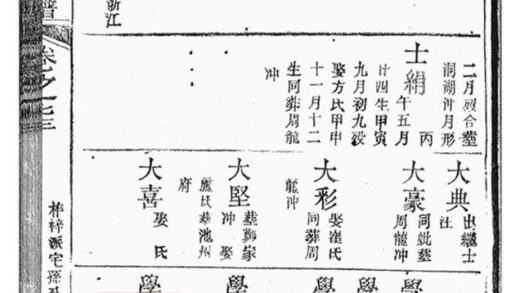 二月初合塟
洞湖沖月形
士絹
午五月
丙
廿四生甲寅
九月初九殁
娶方氏甲申
十一月十二
生同葬周龍
冲
大典
出繼士
大豪
同妣塟
周龍冲
大彩
娶崔氏
同葬周
龍冲
大堅
塟鄭家
冲
娶
盧氏葬池州
府
大喜
娶
氏
學
學
學
學
卷之
浙江
譜
派宅孫